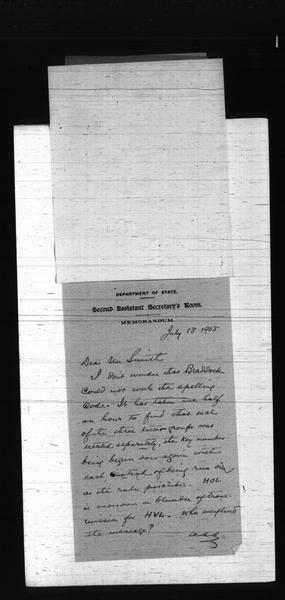 DEPARTMENT OF STATE.
Second Assistant Secretary's Room.
MEMORANDUM.
July 18 1905
Dear Mr Smith
I don't wonder that Braddock
could not work the spelling
Code. It has taken me half
an hour to find that each
of the three groups was
treated separately, the key number
being begun over again with
each, instead of being run on
as the rule prescribes. HOL
is moreover a blunder of trans-
mission for HVL. Who
the message?